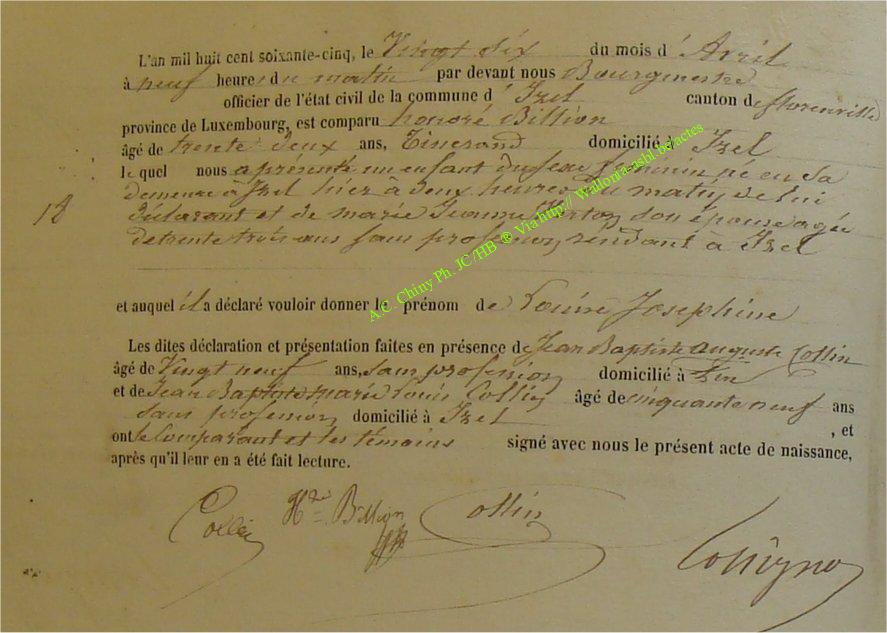 L'an mil huit cent soixante-cinq, le Vingt six du mois d' Avril
à neuf heures du matin par devant nous Bourgmestre
officier de l'état civil de la commune d' Izel canton de florenville
province de Luxembourg, est comparu honoré Billion
âgé de trente deux ans, Tisserand domicilié à Izel
le quel nous a présenté un enfant du sexe féminin né en sa
demeure à Izel hier à deux heures du matin de lui
déclarant et de marie Jeanne son épouse agée
18
de trente trois ans sans profession résidant à Izel
et auquel il a déclaré vouloir donner le prénom de Louise Josephine
Les dites déclaration et présentation faites en présence de Jean Baptiste auguste Collin
âgé de Vingt neuf ans, sans profession domicilié à
et de Jean Baptiste marie Louis Collin âgé de cinquante neuf ans
sans profession domicilié à Izel , et
ont le Comparant et les témoins signé avec nous le présent acte de naissance,
après qu'il leur en a été fait lecture.
Collin Hré Billion Collin
A.C. Chiny Ph. JC/HB ® Via http://Wallonia-asbl.be/actes